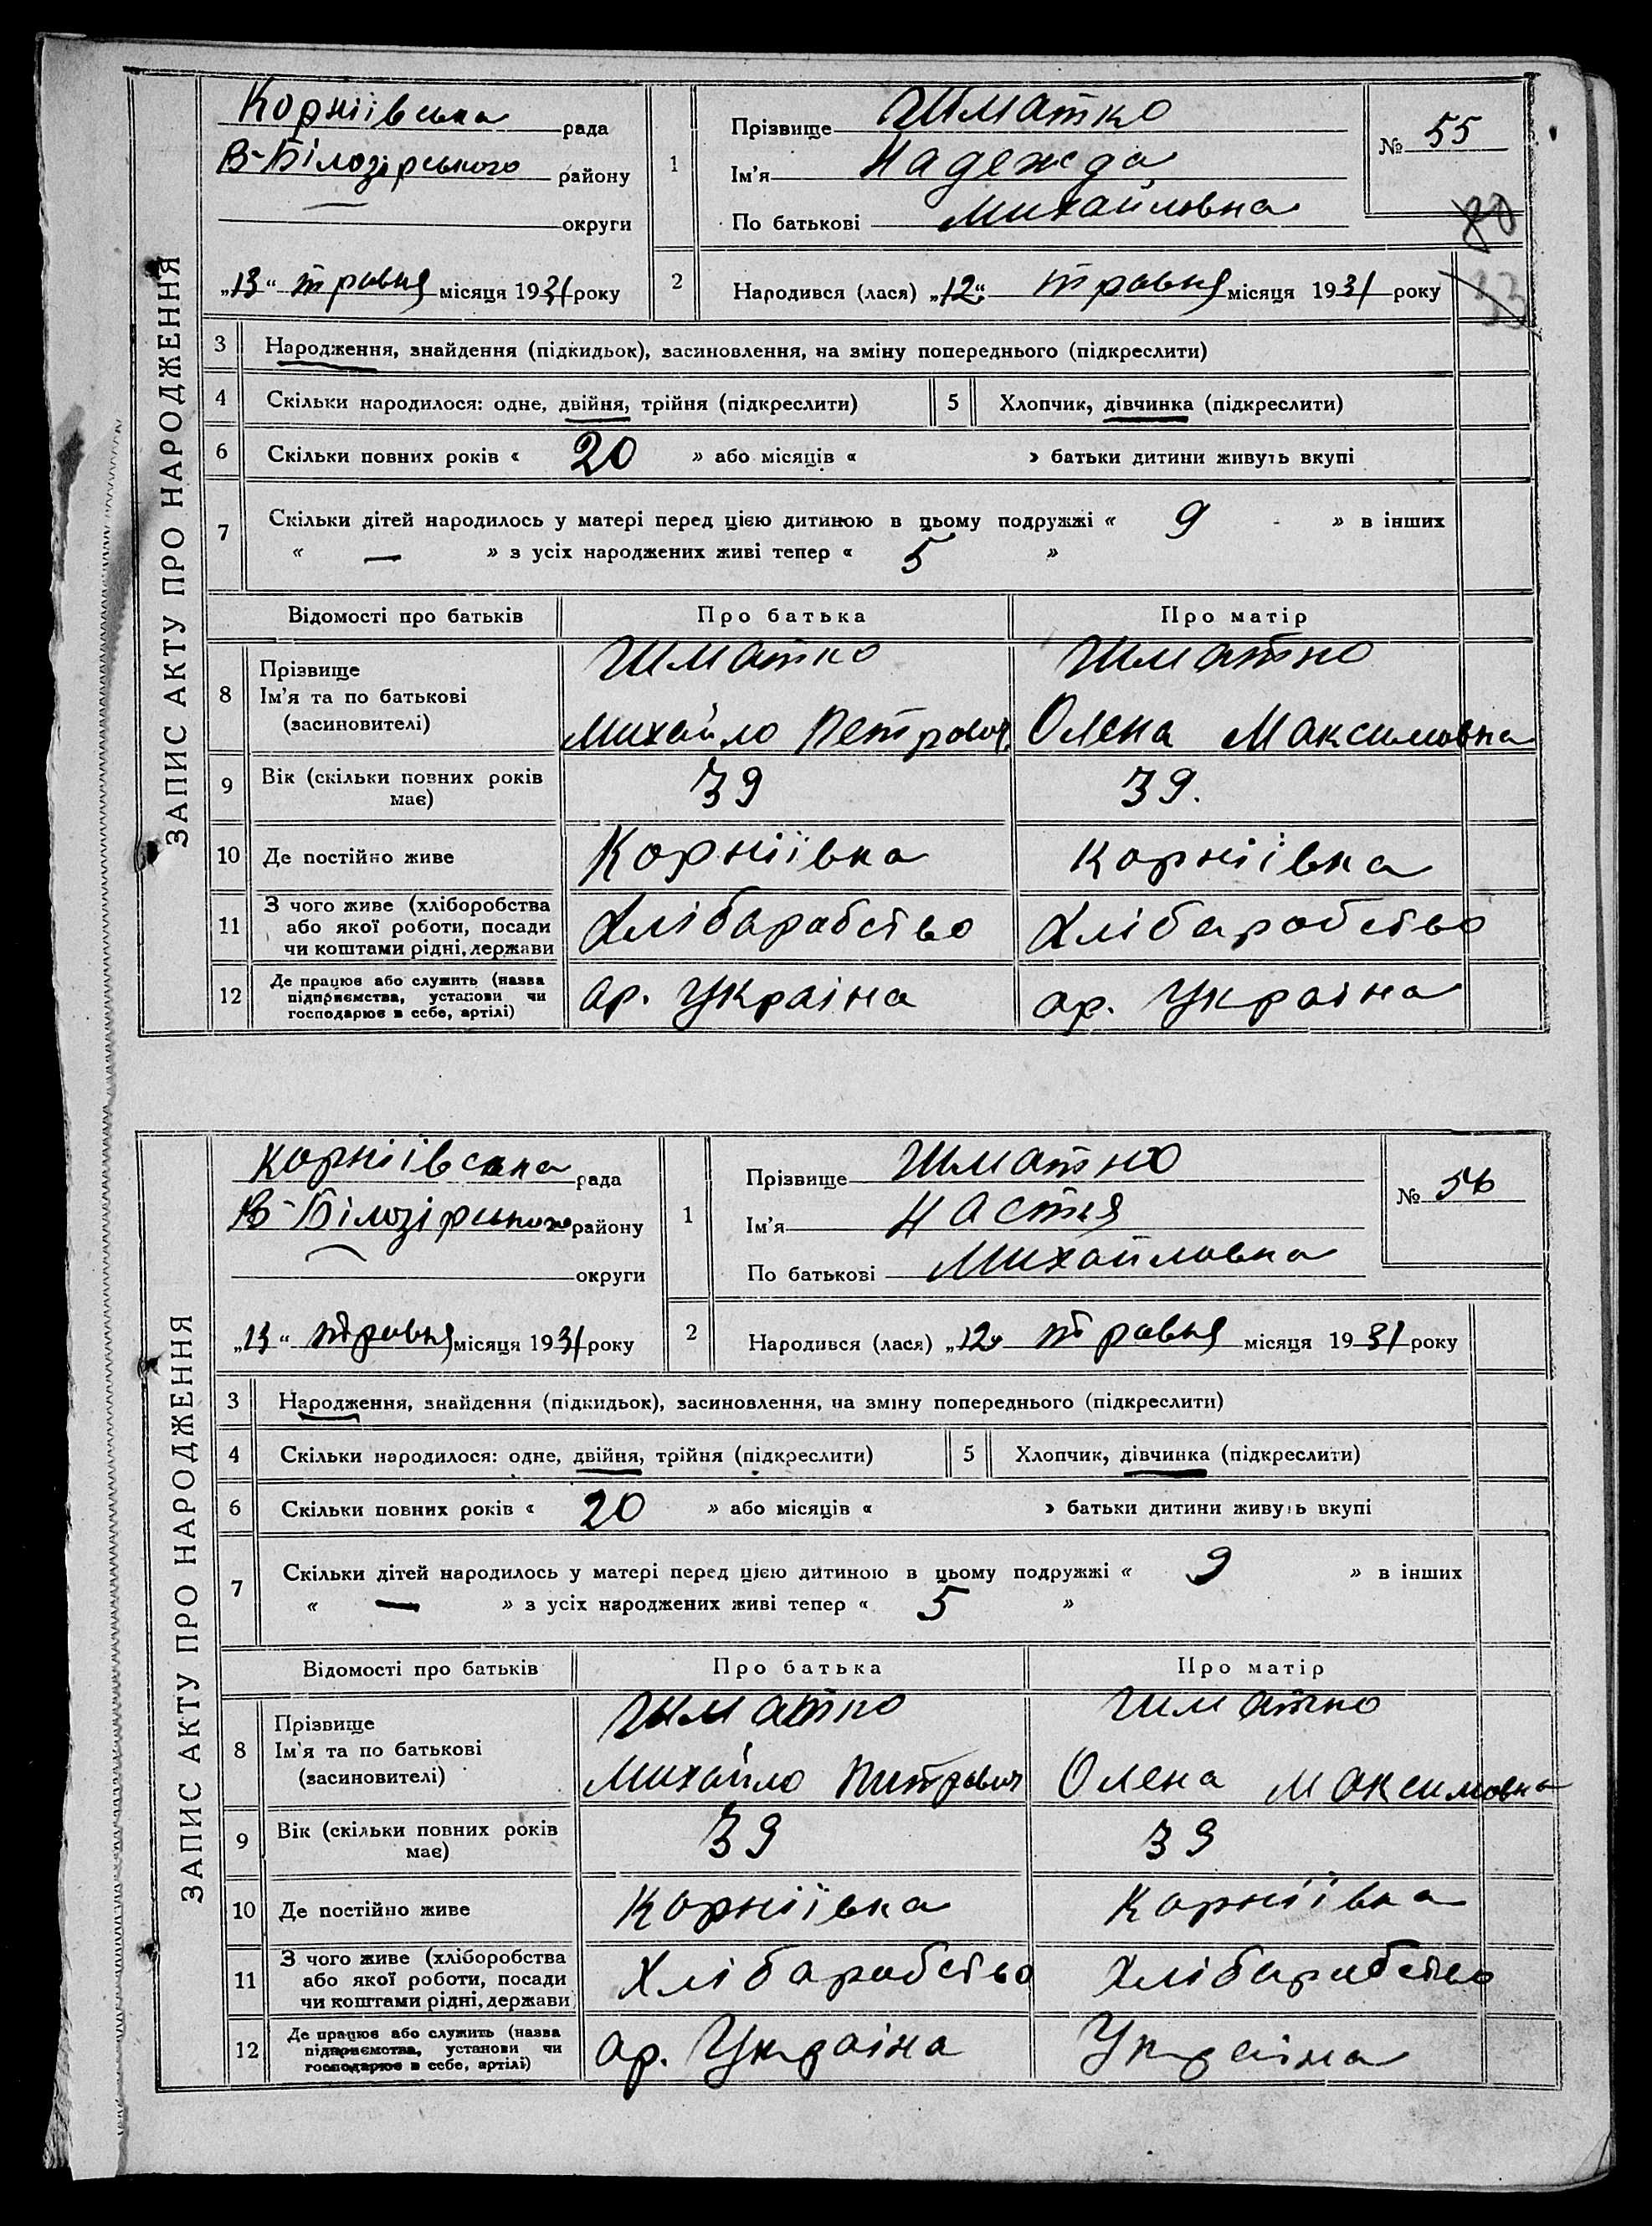 ЗАПИС АКТУ ПРО НАРОДЖЕННЯ
Корніївська рада
В-Білозірського району
округи
„13“ травня місяця 1931 року
1
Прізвище Шматко
Ім'я Надежда
По батькові Михайловна
№ 55
80
33
2
Народився (лася) „12“ травня місяця 1931 року
3 Народження, знайдення (підкидьок), засиновлення, на зміну попереднього (підкреслити)
4 Скільки народилося: одне, двійня, трійня (підкреслити) 5 Хлопчик, дівчинка (підкреслити)
6 Скільки повних років « 20 » або місяців « » батьки дитини живуть вкупі
7 Скільки дітей народилось у матері перед цією дитиною в цьому подружжі « 9 » в інших
« — » з усіх народжених живі тепер « 5 »
Відомості про батьків Про батька Про матір
8 Прізвище Шматко Шматко
Ім'я та по батькові
(засиновителі) Михайло Петрович Олена Максимовна
9 Вік (скільки повних років має) 39 39.
10 Де постійно живе Корніївка Корніївка
11 З чого живе (хліборобства
або якої роботи, посади
чи коштами рідні, держави Хлібаробство Хлібаробство
12 Де працює або служить (назва
підприємства, установи чи
господарює в себе, артілі) ар. Україна ар. Україна
ЗАПИС АКТУ ПРО НАРОДЖЕННЯ
Корніївська рада
В-Білозірського району
округи
„13“ травня місяця 1931 року
1
Прізвище Шматко
Ім'я Настя
По батькові Михайловна
№ 56
2
Народився (лася) „12“ травня місяця 1931 року
3 Народження, знайдення (підкидьок), засиновлення, на зміну попереднього (підкреслити)
4 Скільки народилося: одне, двійня, трійня (підкреслити) 5 Хлопчик, дівчинка (підкреслити)
6 Скільки повних років « 20 » або місяців « » батьки дитини живуть вкупі
7 Скільки дітей народилось у матері перед цією дитиною в цьому подружжі « 9 » в інших
« — » з усіх народжених живі тепер « 5 »
Відомості про батьків Про батька Про матір
8 Прізвище Шматко Шматко
Ім'я та по батькові
(засиновителі) Михайло Питрович Олена Максимовна
9 Вік (скільки повних років має) 39 39
10 Де постійно живе Корніївка Корніївка
11 З чого живе (хліборобства
або якої роботи, посади
чи коштами рідні, держави Хлібаробство Хлібаробство
12 Де працює або служить (назва
підприємства, установи чи
господарює в себе, артілі) ар. Україна Україна